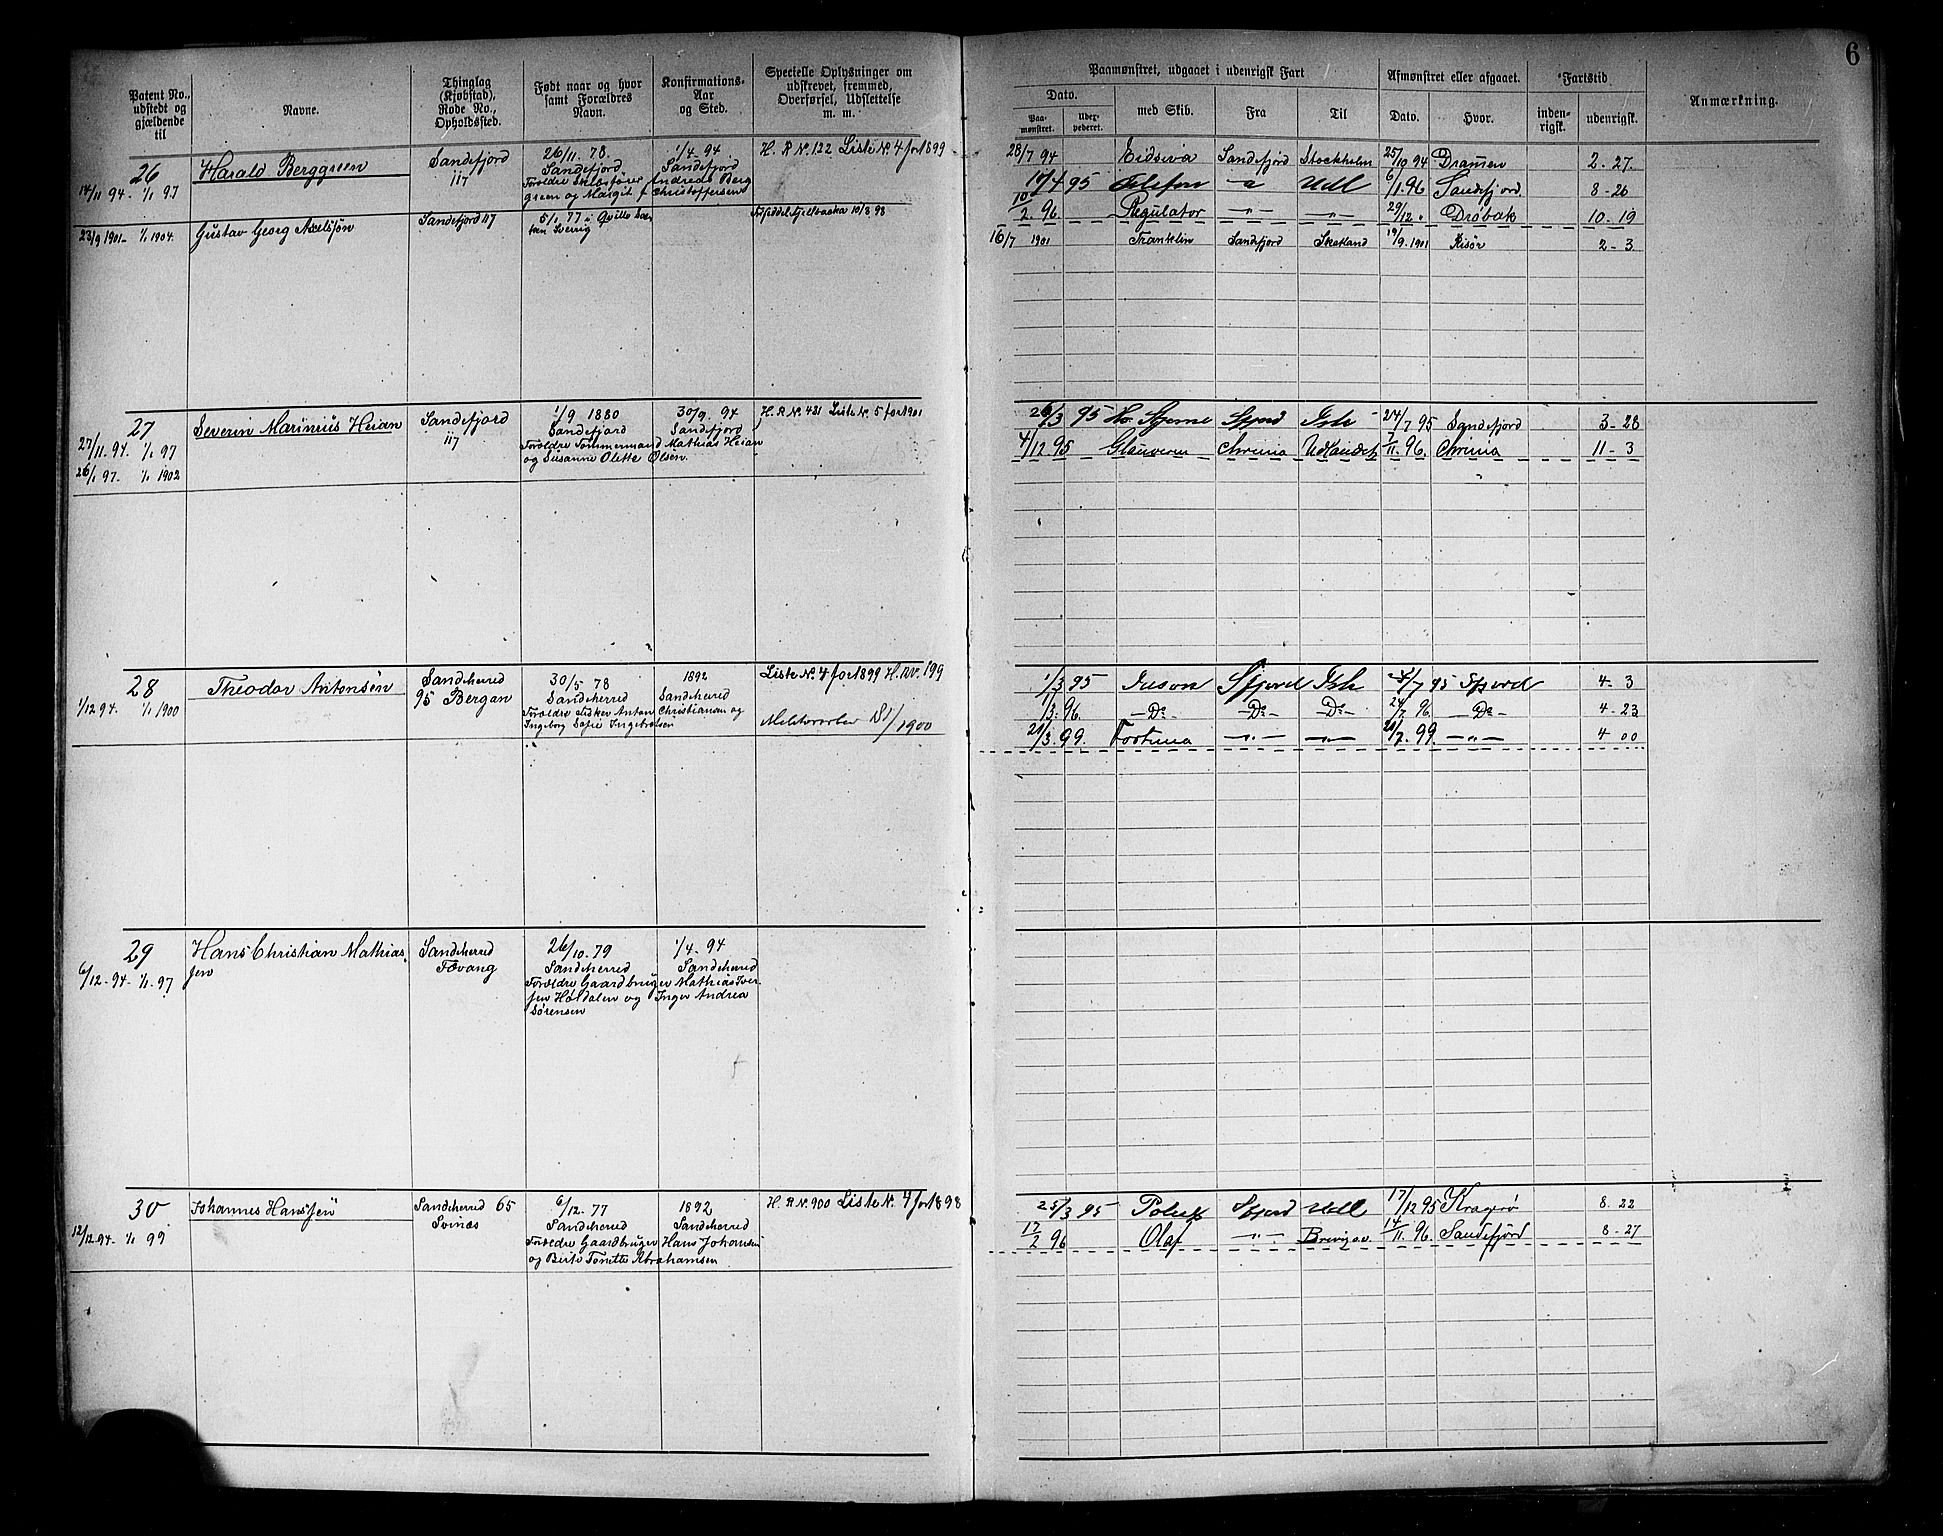 6
Patent No., udstedt og gjældende til
Navne.
Thinglag (Kjøbstad), Rode No., Opholdssted.
Født naar og hvor samt Forældres Navn.
Konfirmations-Aar og Sted.
Specielle Oplysninger om udskrevet, fremmed, Overførsel, Udslettelse m. m.
Paamønstret, udgaaet i udenrigsk Fart
Afmønstret eller afgaaet.
Fartstid
Anmærkning.
Dato.
Paa-mønstret.
med Skib.
Fra
Til
Dato.
Hvor.
inden-rigsk.
udenrigsk.
26
14/11 94. 1/1 97
Harald Berggreen
Sandefjord
117
26/11. 78.
Sandefjord
Forældre Skibsfører Andreas Berg
green og Margit f Christoffersen
1/4. 94
Sandefjord
H. R No. 122 Liste No. 4 for 1899
28/7 94 Eidsiva Sandefjord Stockholm 25/10 94 Dramen 2 - 27.
17/4 95 Telefon Udl 6/1. 96 Sandefjord 8 - 26
10/2. 96 Regulator — " — — " — 29/12 " Drøbak 10. 19
23/9 1901 - 1/1 1904.
Gustav Georg Axelssøn
Sandefjord 117
5/1. 77
Sverig
10/8 98
16/7 1901 Franklin Sandefjord 19/9. 1901 Risør 2 - 3
27
27/11. 94. 1/1 97
26/1 97. 1/1 1902
Severin Marinius Heian
Sandefjord
117
1/9 1880
Sandefjord
Forældre Tømmermand Mathias Heian
og Susanne Olette Olsen.
30/9. 94
Sandefjord
H. R No. 481 Liste No. 5 for 1901
26/3 95 Hv. Stjerne Sfjord Ish 24/7 95 Sandefjord 3 - 28
4/12 95 Chrinia Udlandet 7/11. 96. Chrinia 11 - 3
28
1/12 94. 1/1 1900
Theodor Antonsen
Sandeherred
95 Bergan
30/5 78
Sandeherred
Forældre Fisker Anton Christiansen og
Ingeborg Sofie Ingebretsen
1892
Sandeherred
Liste No. 4 for 1899 H. nr. 199
1/1900
1/3 95 Jason Sfjord Ish /7 95 Sfjord 4 - 3
1/3. 96. — Do — — Do — — Do — 24/7. 96 — Do — 4 - 23
21/3. 99. Fortuna — " — — " — 21/7. 99. — " — 4 00
29
6/12 - 94 - 1/1 - 97
Hans Christian Mathias-
sen
Sandeherred
Fevang
26/10. 79
Sandeherred
Forældre Gaardbruger Mathias Iver-
sen Haldalen og Inger Andrea
Sørensen
1/4. 94
Sandeherred
30
12/12 94 - 1/1 99
Johannes Hanssen
Sandeherred 65
Svinæs
6/12. 77
Sandeherred
Forældre Gaardbruger Hans Johansen
og Birte Tonette Abrahamsen
1892
Sandeherred
H. R No. 900 Liste No. 4 for 1898
25/3 95 Polux Sfjord Udl 17/12 95 Kragerø 8. 22
12/2 96 Olaf — " — Brevig o.v. 14/11. 96. Sandefjord 8 - 27